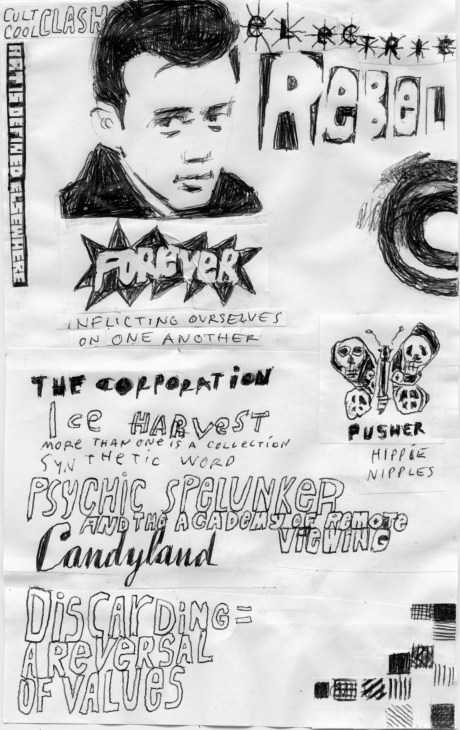 CULT
COOL CLASH
ELECTRIC
REBEL
ART IS DEFINED ELSEWHERE
FOREVER
INFLICTING OURSELVES
ON ONE ANOTHER
THE CORPORATION
ICE HARVEST
MORE THAN ONE IS A COLLECTION
SYNTHETIC WORD
PUSHER
HIPPIE
NIPPLES
PSYCHIC SPELUNKER
AND THE ACADEMY OF REMOTE
VIEWING
Candyland
DISCARDING =
A REVERSAL
OF VALUES